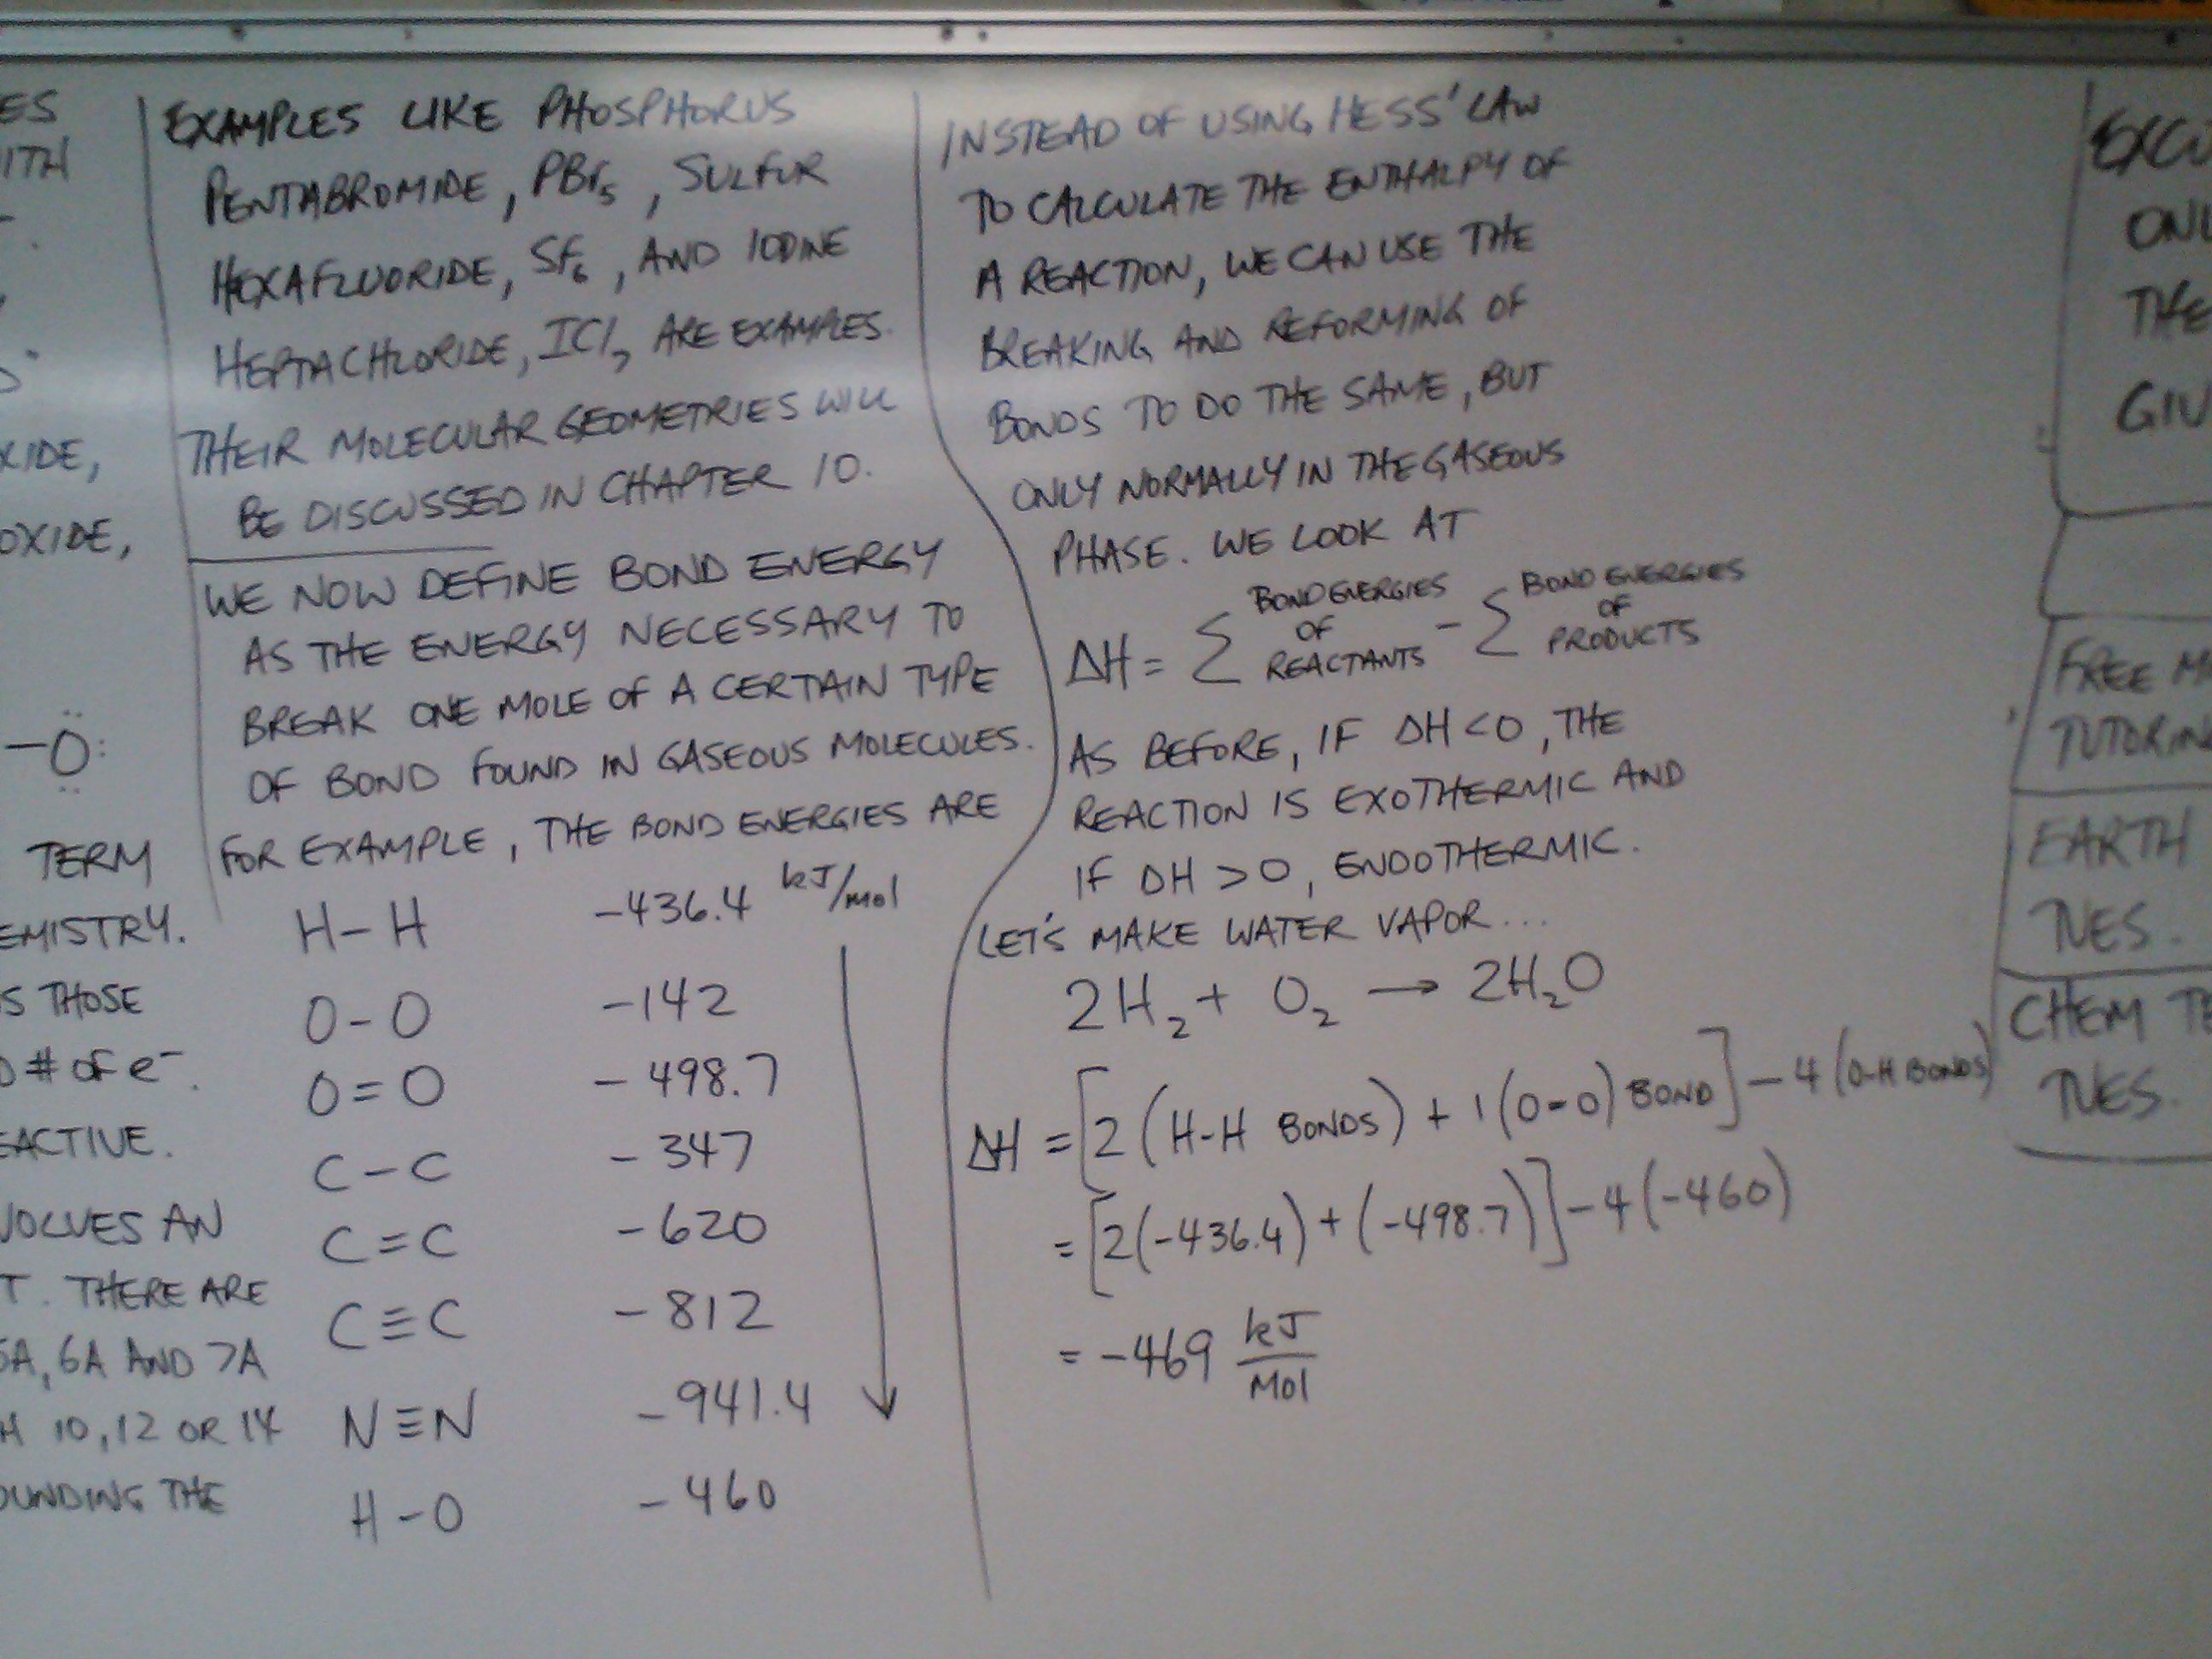 ES
ITH
XIDE,
OXIDE,
–O:
TERM
EMISTRY.
S THOSE
# OF e⁻.
EACTIVE.
VOLVES AN
T. THERE ARE
5A, 6A AND 7A
H 10, 12 OR 14
OUNDING THE
EXAMPLES LIKE PHOSPHORUS
PENTABROMIDE, PBr₅, SULFUR
HEXAFLUORIDE, SF₆, AND IODINE
HEPTACHLORIDE, ICl₇ ARE EXAMPLES.
THEIR MOLECULAR GEOMETRIES WILL
BE DISCUSSED IN CHAPTER 10.
WE NOW DEFINE BOND ENERGY
AS THE ENERGY NECESSARY TO
BREAK ONE MOLE OF A CERTAIN TYPE
OF BOND FOUND IN GASEOUS MOLECULES.
FOR EXAMPLE, THE BOND ENERGIES ARE
H–H –436.4 kJ/mol
O–O –142
O=O –498.7
C–C –347
C=C –620
C≡C –812
N≡N –941.4
H–O –460
INSTEAD OF USING HESS' LAW
TO CALCULATE THE ENTHALPY OF
A REACTION, WE CAN USE THE
BREAKING AND REFORMING OF
BONDS TO DO THE SAME, BUT
ONLY NORMALLY IN THE GASEOUS
PHASE. WE LOOK AT
ΔH = Σ BOND ENERGIES OF REACTANTS – Σ BOND ENERGIES OF PRODUCTS
AS BEFORE, IF ΔH < 0, THE
REACTION IS EXOTHERMIC AND
IF ΔH > 0, ENDOTHERMIC.
LET'S MAKE WATER VAPOR...
2H₂ + O₂ → 2H₂O
ΔH = [2(H–H BONDS) + 1(O=O) BOND] – 4(O–H BONDS)
= [2(–436.4) + (–498.7)] – 4(–460)
= –469 kJ/mol
ONL
THE
GIV
FREE M
TUTORING
EARTH
TUES.
CHEM T
TUES.